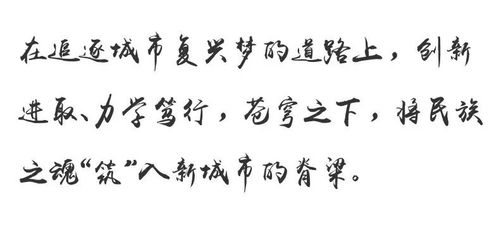 在追逐城市复兴梦的道路上，创新
进取、力学笃行，苍穹之下，将民族
之魂“筑”入新城市的脊梁。